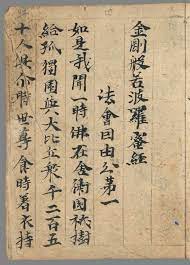 金剛般若波羅蜜經
法會因由分第一
如是我聞一時佛在舍衛國祇樹
給孤獨園與大比丘衆千二百五
十人俱尒時世尊食時着衣持